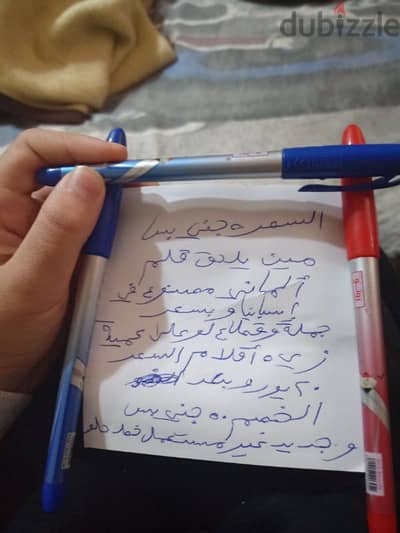 dubizzle
السعر ٥ جني بس
مين يلحق قلم
ألماني مصنوع في
أسبانيا وبسعر
جملة وقطاعي لو
زي ٥ أقلام السعر
٢٠ يورو وبعد
الخصم ٥٠ جني بس
وجديد غير مستعمل